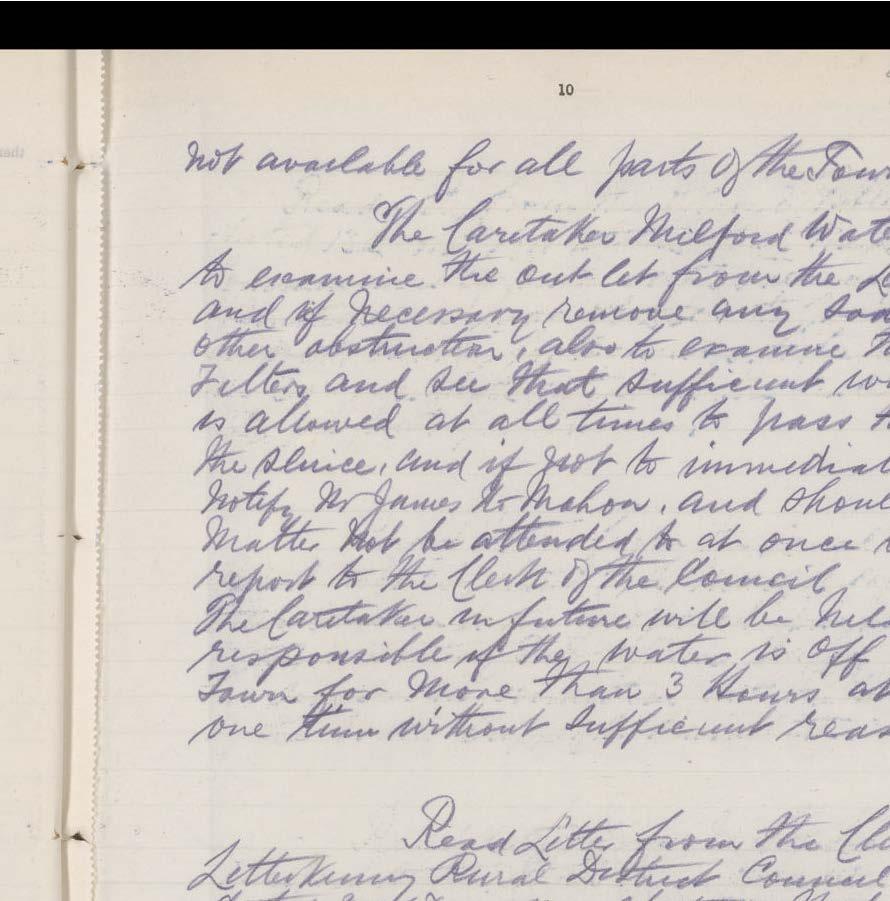 10
not available for all parts of the Town
The Caretaker Milford Wate
to examine the out let from the L
and if necessary remove any
other obstruction, also to examine th
Filters and see that sufficient w
is allowed at all times to pass
the sluice, and if not to immediat
notify Mr James Mc Mahon, and shoul
Matter not be attended to at once
report to the Clerk of the Council
The Caretaker in future will be hel
responsible if the water is off
Town for more than 3 Hours at
one time without sufficient reas
Read Letter from the Cle
Letterkenny Rural District Council